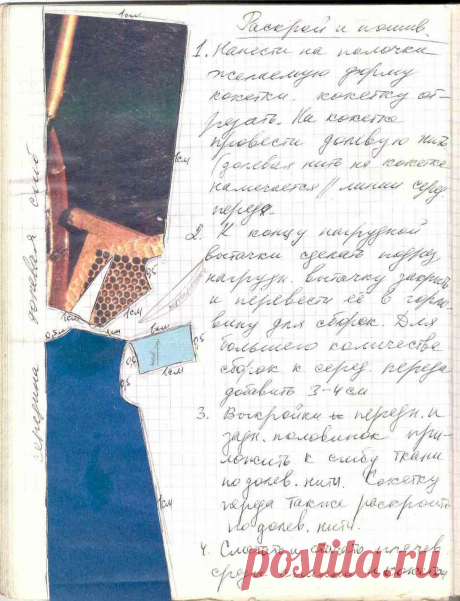 Раскрой и пошив.
1. Нанести на полочки
желаемую форму
кокетки. кокетку от-
резать. На кокетке
провести долевую нить
(долевая нить на кокетке
намечается // линии серед.
переда.
2. К концу нагрудной
вытачки сделать подрез
нагрудн. вытачку закрыть
и перевести её в горло-
вину для сборок. Для
большего количества
сборок к серед. переда
добавить 3-4 см
3. Выкройки передн. и
задн. половинок при-
ложить к сгибу ткани
по долев. нити. Кокетку
переда также раскроить
по долев. нити.
4. Сметать и
середина долевая сгиб
1см
1см
0,5
1см
1см
0,5
1см
0,5
0,5
1см
1см
postila.ru